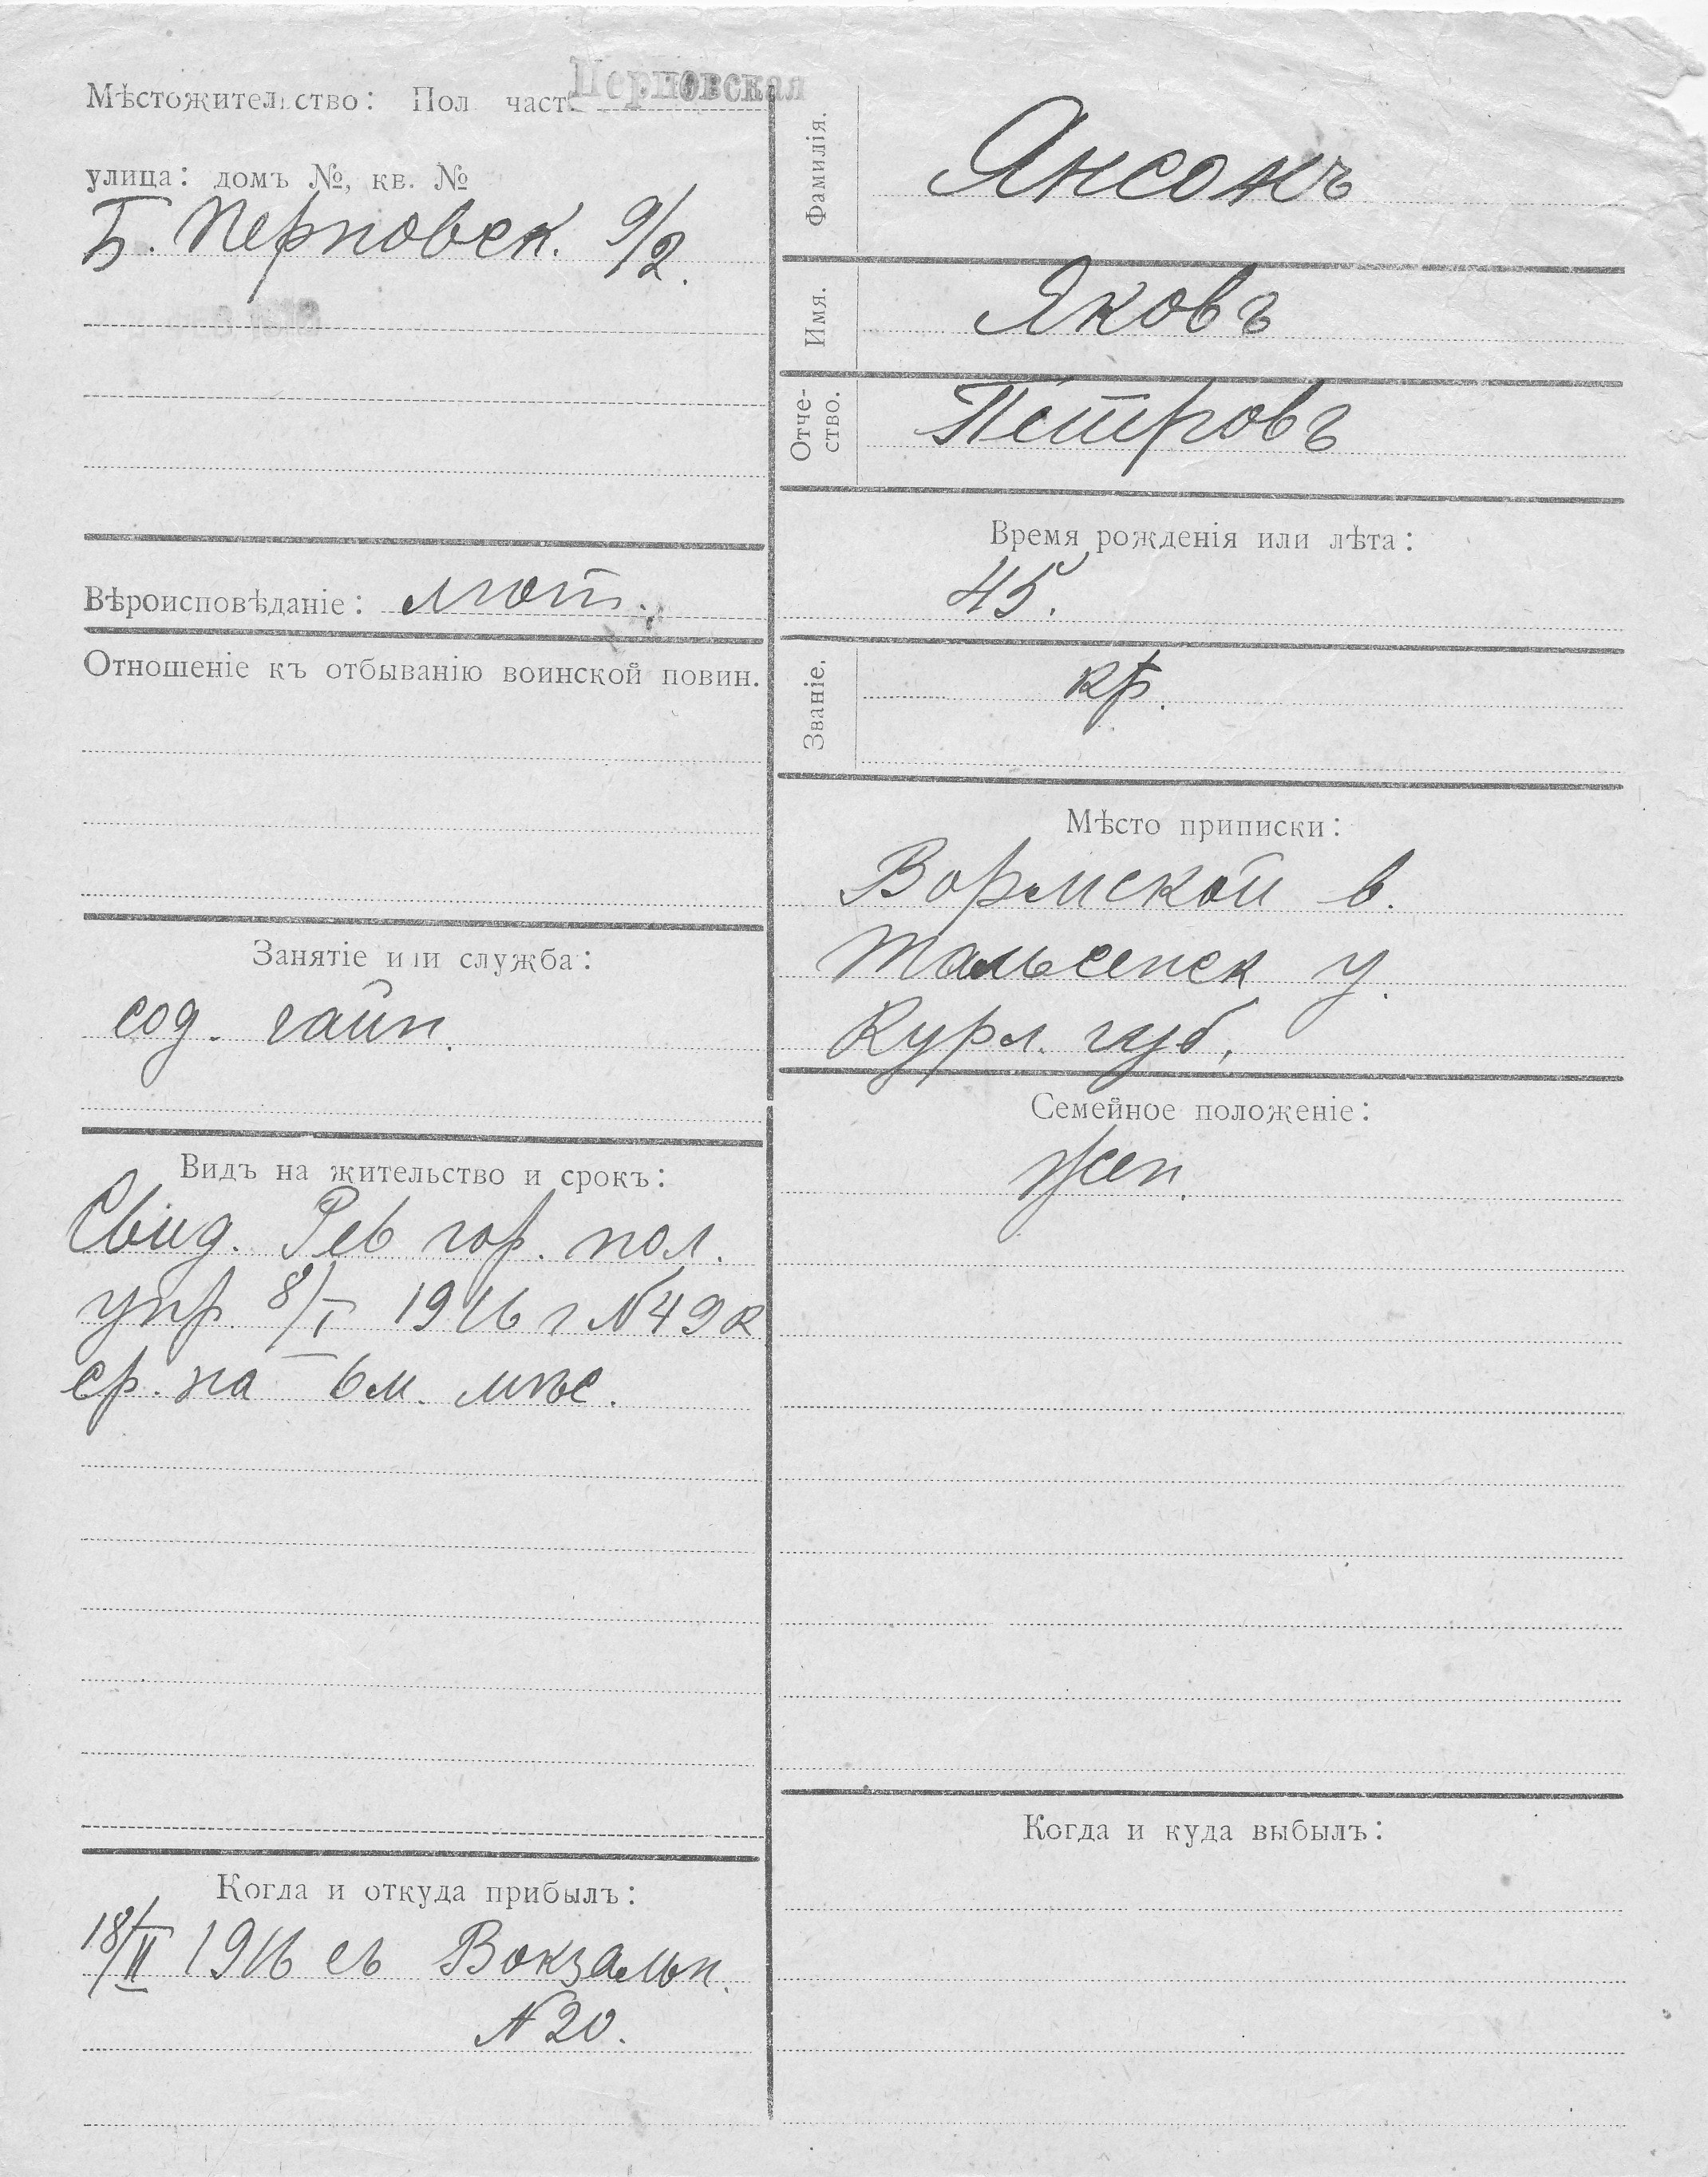 Мѣстожительство: Пол част. Перновская
улица: домъ №, кв. №
Б. Перновск. 9/2.
Вѣроисповѣданіе: лют.
Отношеніе къ отбыванію воинской повин.
Занятіе или служба:
сод. чайн.
Видъ на жительство и срокъ:
Свид. Рев гор. пол.
упр. 8/I 1916 г №49к
ср. на 6 м. мѣс.
Когда и откуда прибылъ:
18/II 1916 съ Вокзальн.
№20.
Фамилія. Янсонъ
Имя. Яковъ
Отче-
ство. Петровъ
Время рожденія или лѣта:
45.
Званіе. кр.
Мѣсто приписки:
Вормской в.
Тальсенск у.
Курл. губ.
Семейное положеніе:
жен.
Когда и куда выбылъ: